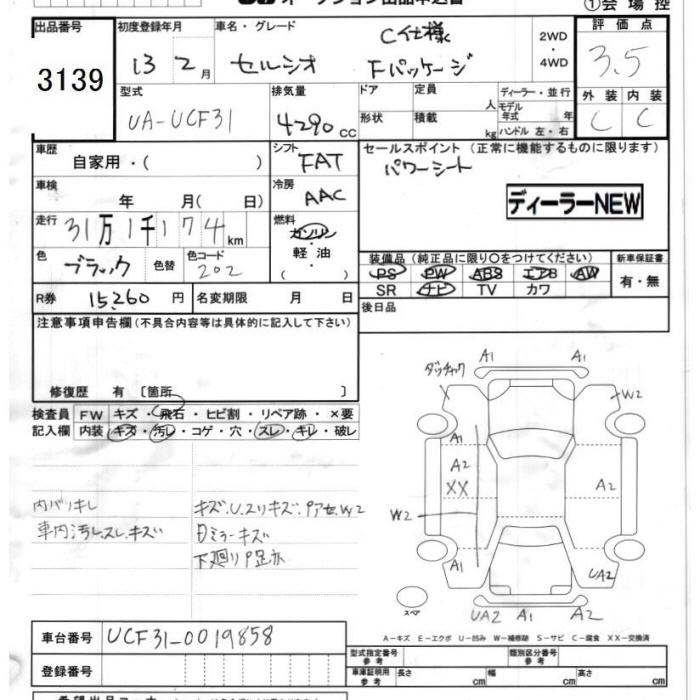 オークション出品申込書
①会場控
出品番号
3139
初度登録年月
13 2月
車名・グレード
C仕様
セルシオ Fパッケージ
2WD
・
4WD
評価点
3.5
外装 内装
C C
型式
UA-UCF31
排気量
4290cc
ドア
形状
定員
人
積載
kg
ディーラー・並行
モデル
年式 年
ハンドル 左・右
車歴
自家用・( )
シフト
FAT
セールスポイント(正常に機能するものに限ります)
パワーシート
ディーラーNEW
車検
年 月( 日)
冷房
AAC
走行
31万1千174km
燃料
ガソリン
・
軽油
( )
色
ブラック
色替
色コード
202
装備品(純正品に限り〇をつけてください)
PS PW ABS エアB AW
SR ナビ TV カワ
新車保証書
有・無
R券 15,260円
名変期限 月 日
後日品
注意事項申告欄(不具合内容等は具体的に記入して下さい)
修復歴 有〔箇所 〕
検査員
記入欄
FW キズ・飛石・ヒビ割・リペア跡・×要
内装 キズ・汚レ・コゲ・穴・スレ・キレ・破レ
内バリキレ
車内汚レ.スレ.キズ
キズ.U.スリキズ.Pアセ.W2
Dミラーキズ
下廻りP足赤
ダッチャク
A1 A1
W2
A1
A2
XX
A2
W2
A1
UA2
スペア
UA2 A1 A2
A−キズ E−エクボ U−凹み W−補修跡 S−サビ C−腐食 XX−交換済
車台番号 UCF31-0019858
登録番号
型式指定番号
参考
類別区分番号
参考
車庫証明用
参考
長さ cm 幅 cm 高さ cm
希望出品コーナー